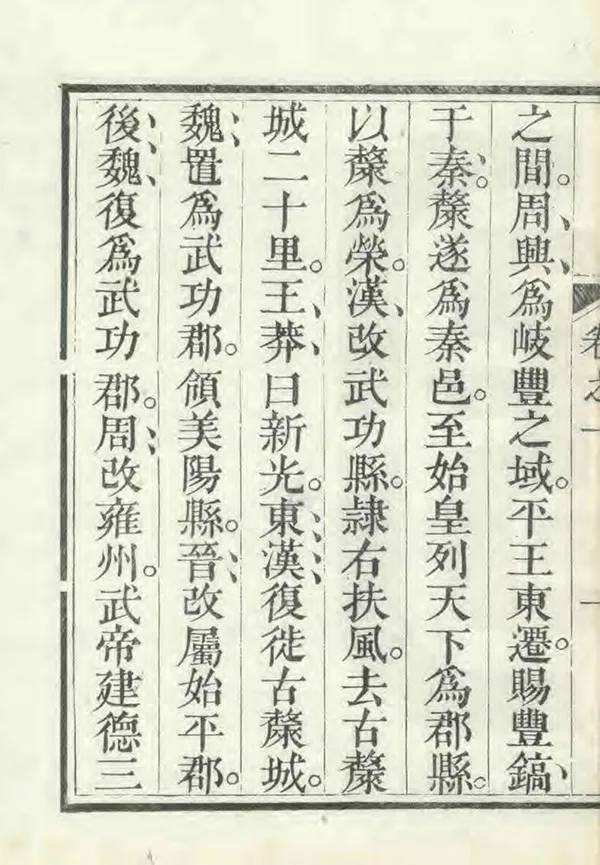 卷之一
一
之間。周興爲岐豐之域。平王東遷。賜豐鎬
于秦。斄遂爲秦邑。至始皇列天下爲郡縣。
以斄爲榮。漢改武功縣。隸右扶風。去古斄
城二十里。王莽曰新光。東漢復徙古斄城。
魏置爲武功郡。領美陽縣。晉改屬始平郡。
後魏復爲武功郡。周改雍州。武帝建德三